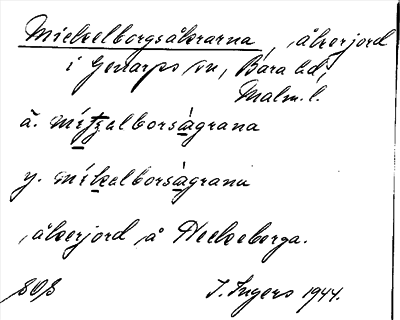 Mickelborgsåkrarna, åkerjord
i Genarps sn, Bara hd,
Malm. l.
ä. míʃʒalborsàgrana
y. míkalborsàgrana
åkerjord å Heckeberga.
I. Ingers 1944.